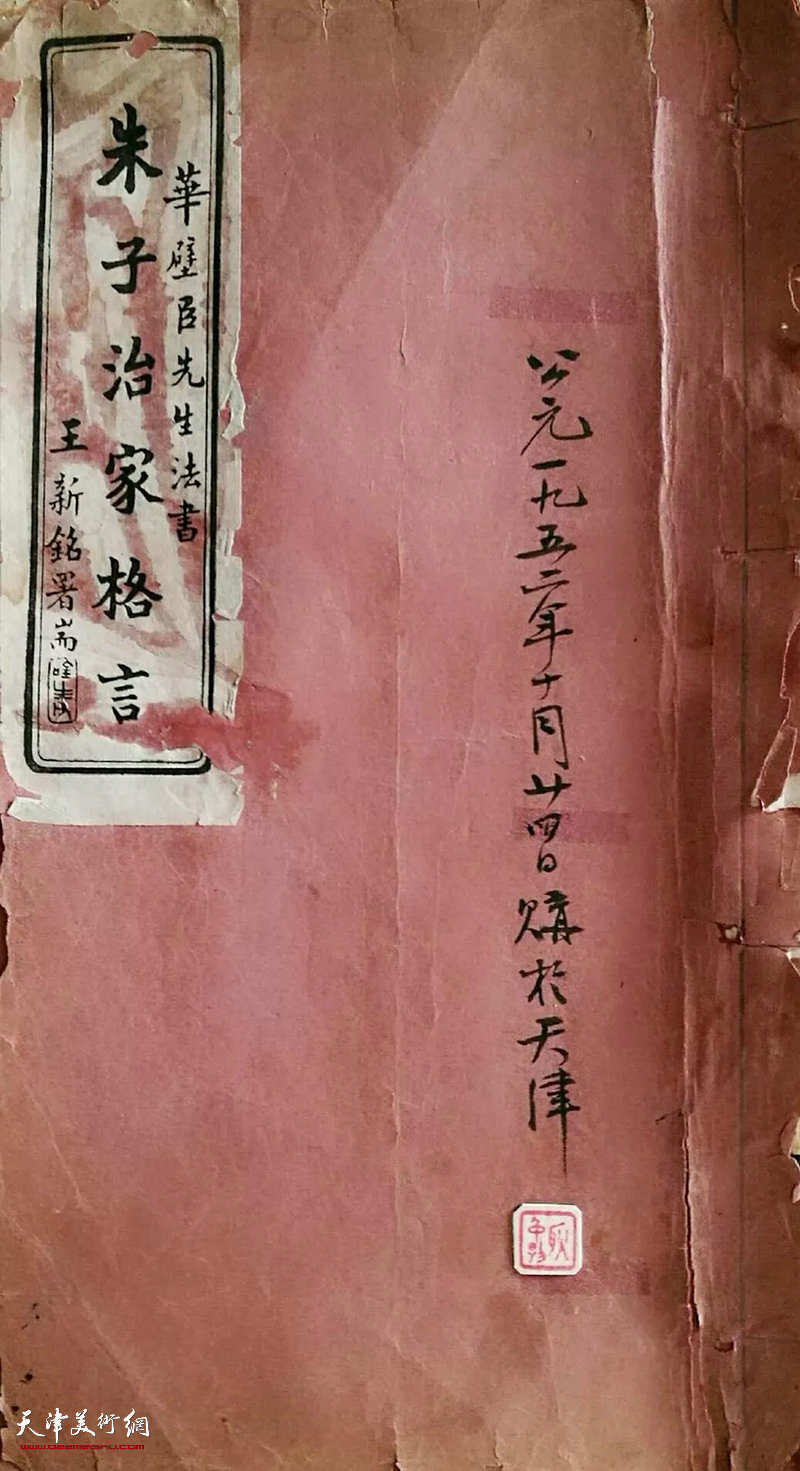 公元一九五二年十月廿四日購於天津
華壁臣先生法書
朱子治家格言
王新銘署耑
天津美術網